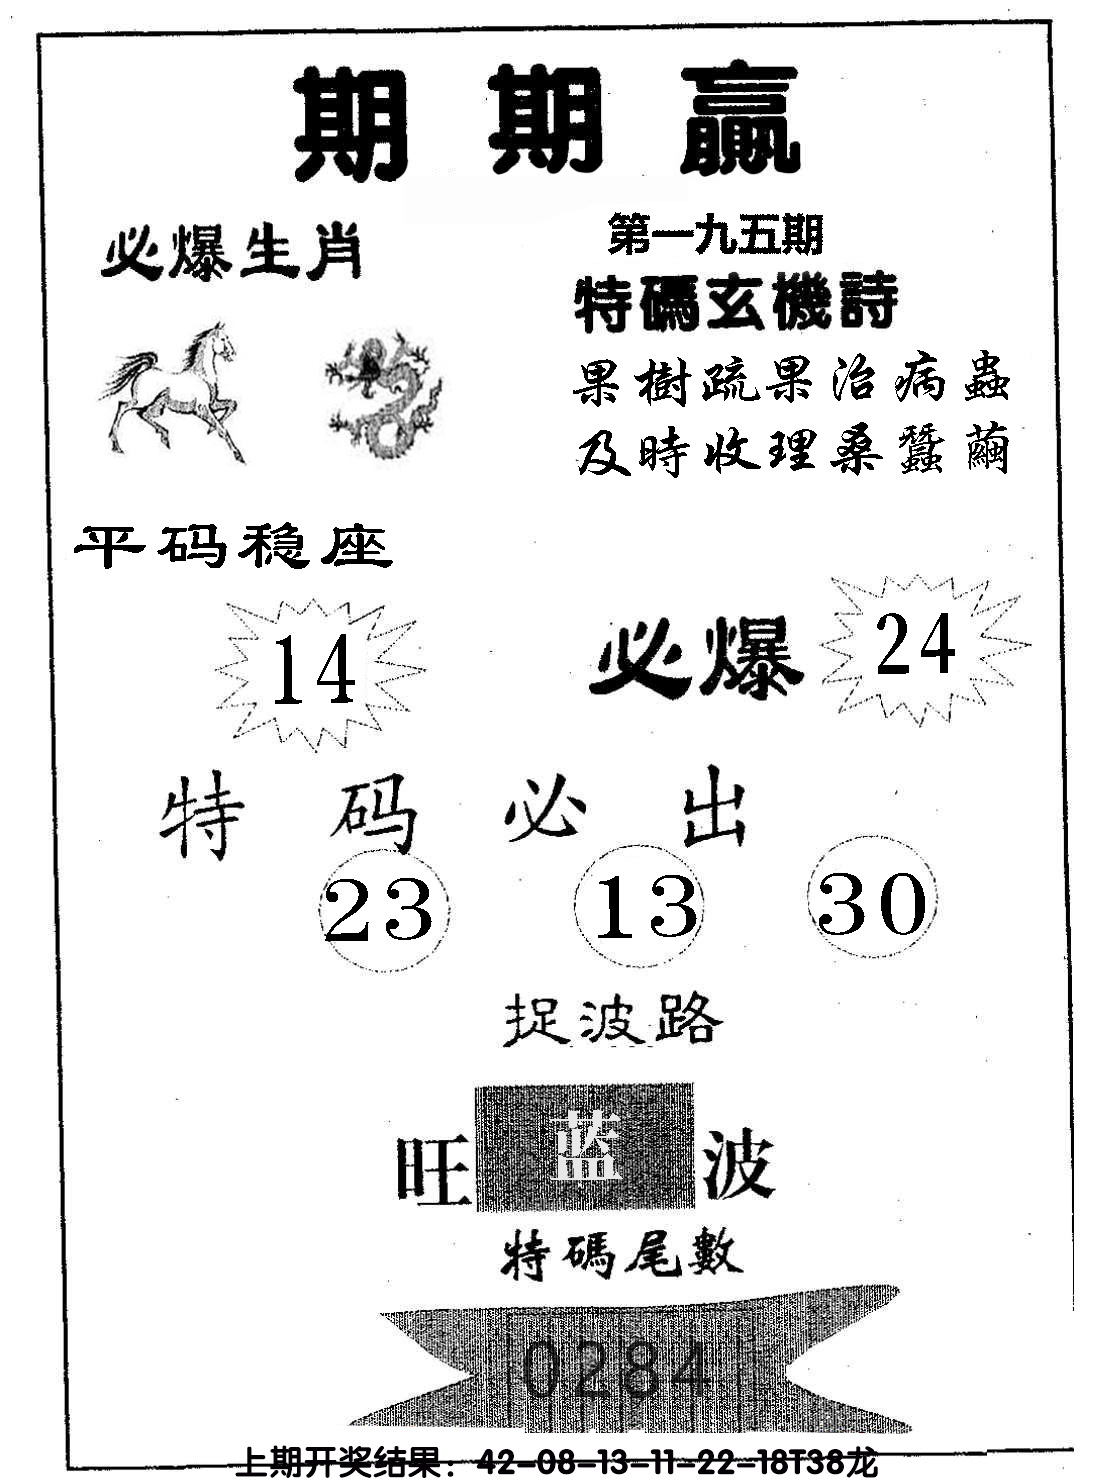 期期贏
必爆生肖
第一九五期
特碼玄機詩
果樹疏果治病蟲
及時收理桑蠶繭
平码稳座
14
必爆 24
特码必出
23 13 30
捉波路
旺蓝波
特碼尾數
0284
上期开奖结果：42-08-13-11-22-18T38龙